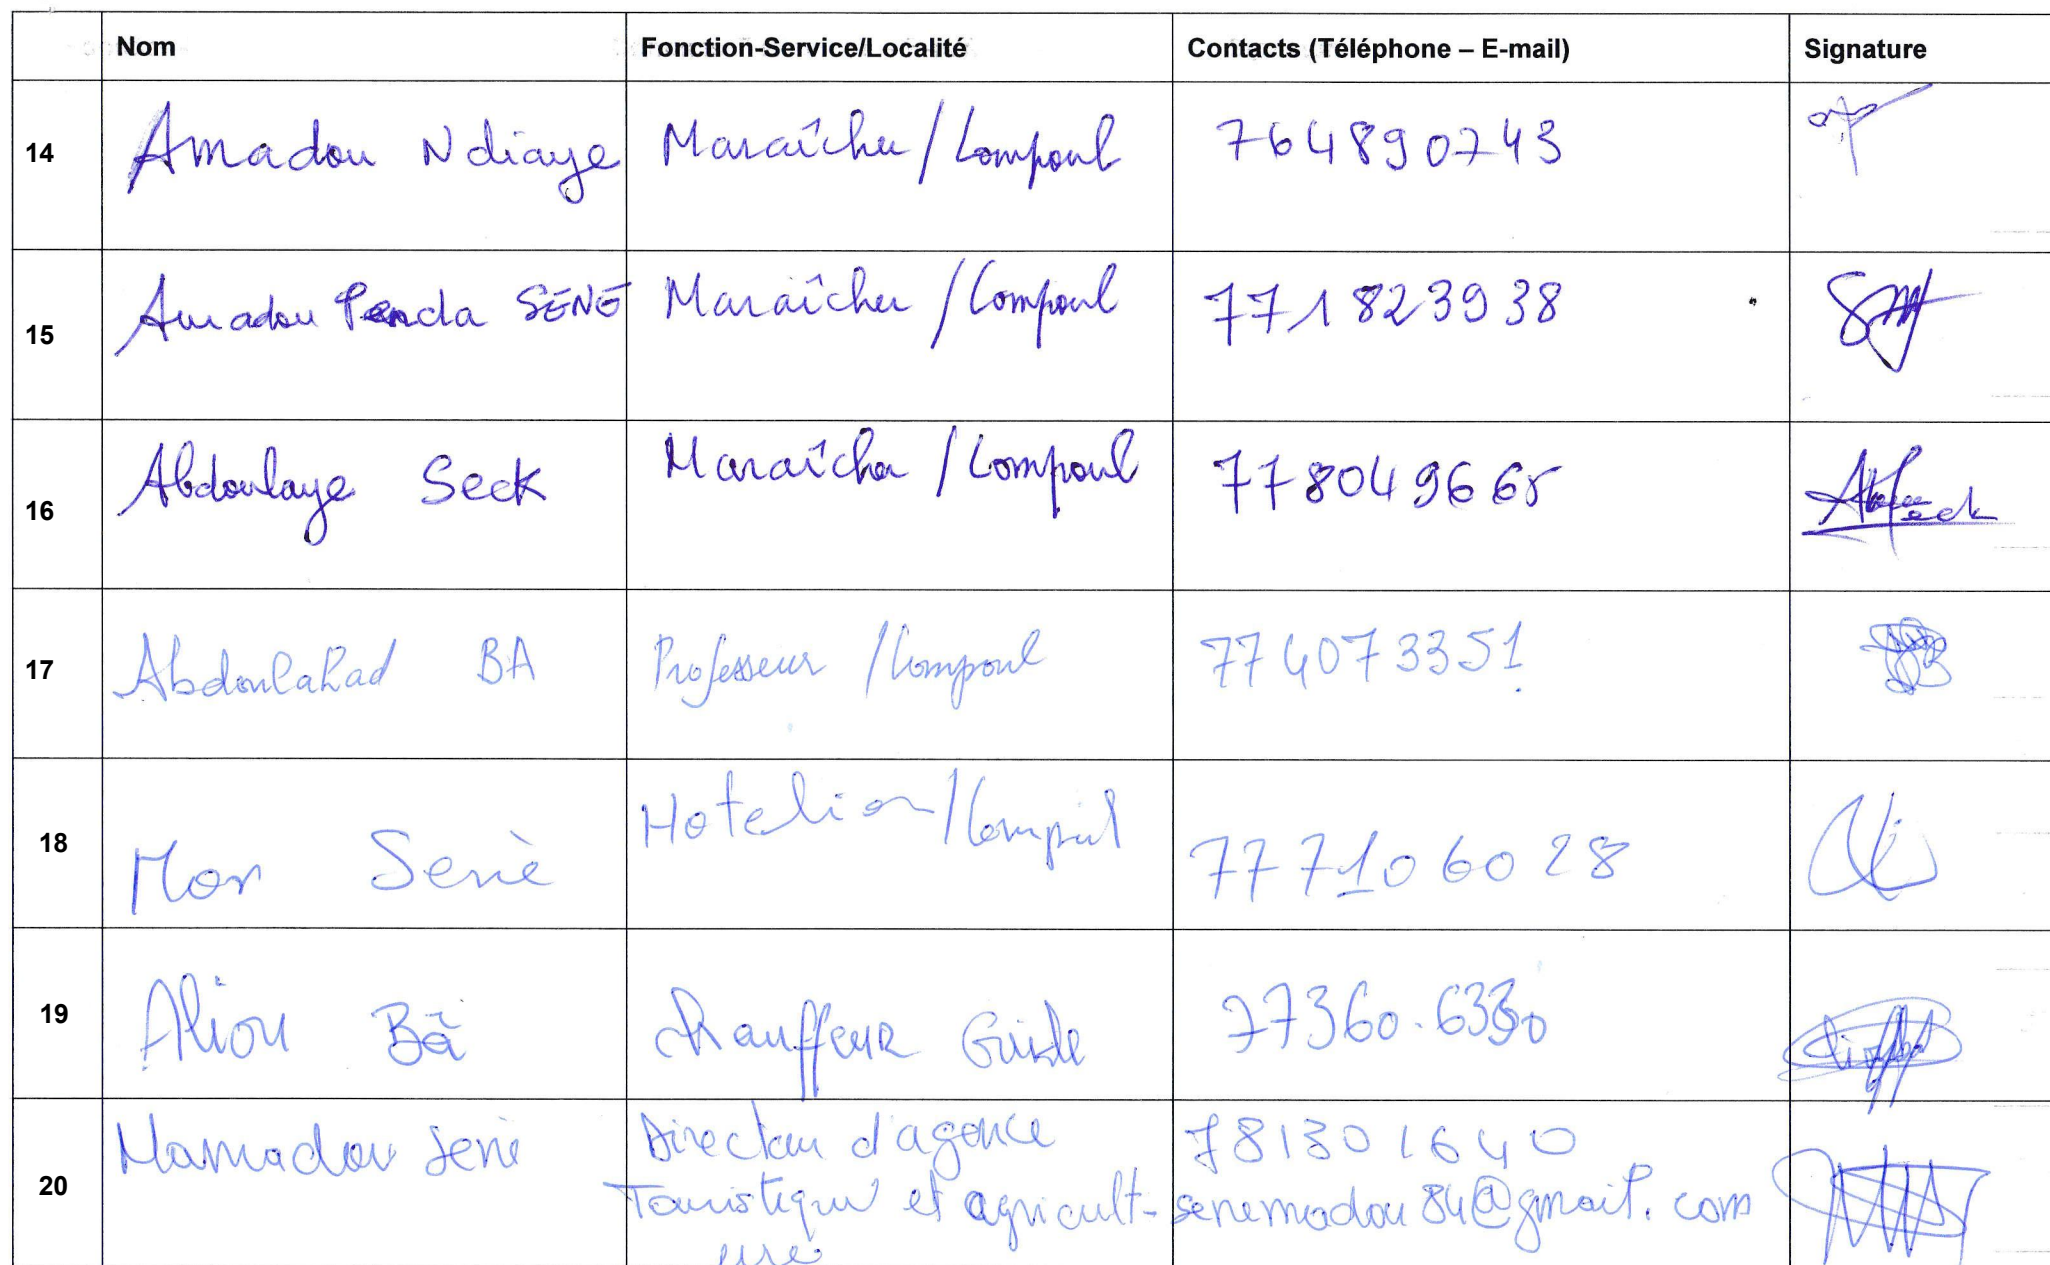 Nom Fonction-Service/Localité Contacts (Téléphone – E-mail) Signature
14 Amadou Ndiaye Maraîcher/Lompoul 764890743
15 Amadou Penda SENE Maraîcher/Lompoul 771823938
16 Abdoulaye Seck Maraîcher/Lompoul 778049665
17 Abdoulahad BA Professeur/Lompoul 774073351
18 Mor Senè Hotelier/Lompoul 777106028
19 Aliou Bâ Chauffeur Guide 77360.6330
20 Mamadou Sene Directeur d'agence 781301640
Touristique et agricult- senemadou84@gmail.com
eure